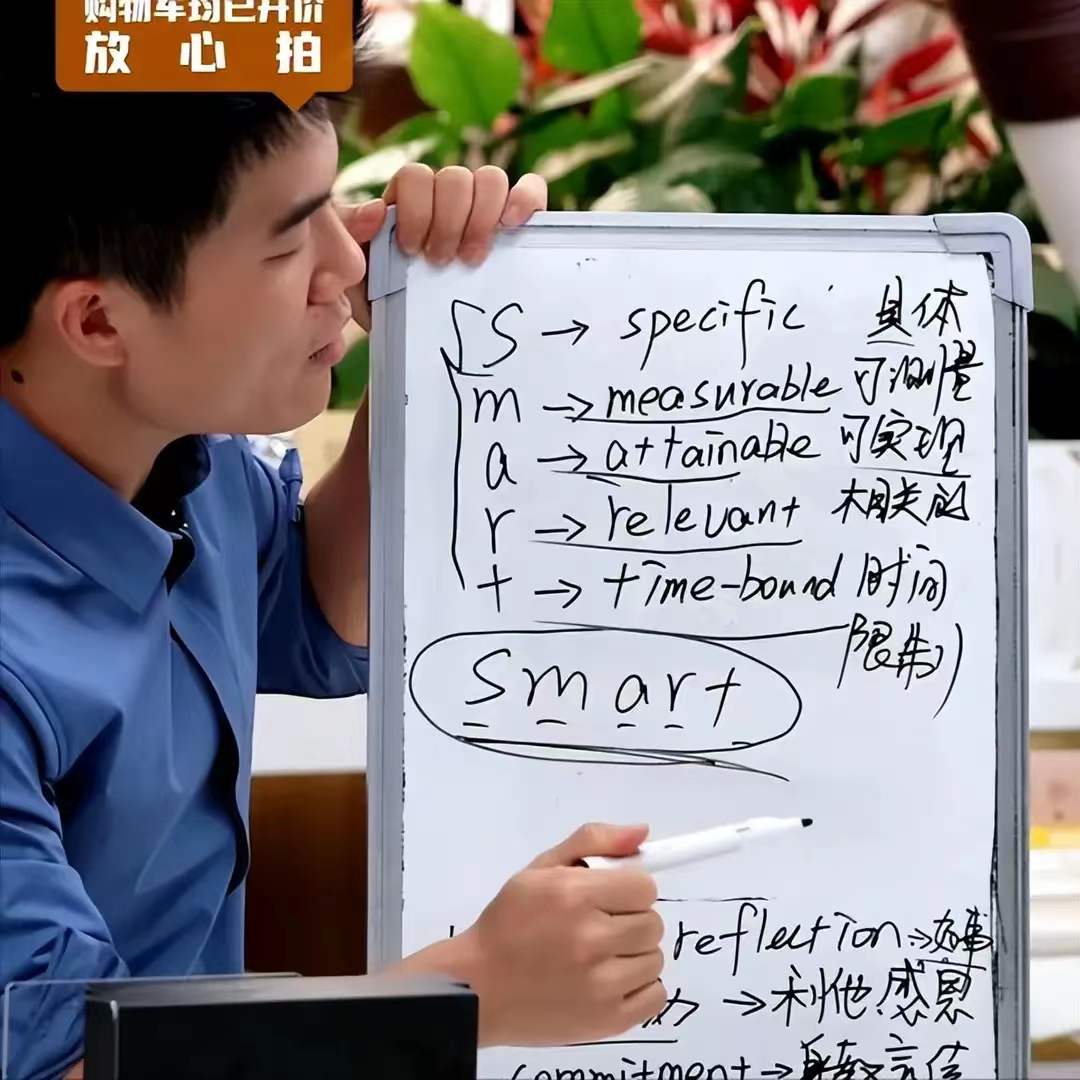 购物车均已开价
放心拍
S → specific 具体
m → measurable 可测量
a → attainable 可实现
r → relevant 相关的
t → time-bound 时间
限制
smart
reflection → 好事
→ 利他.感恩
commitment →